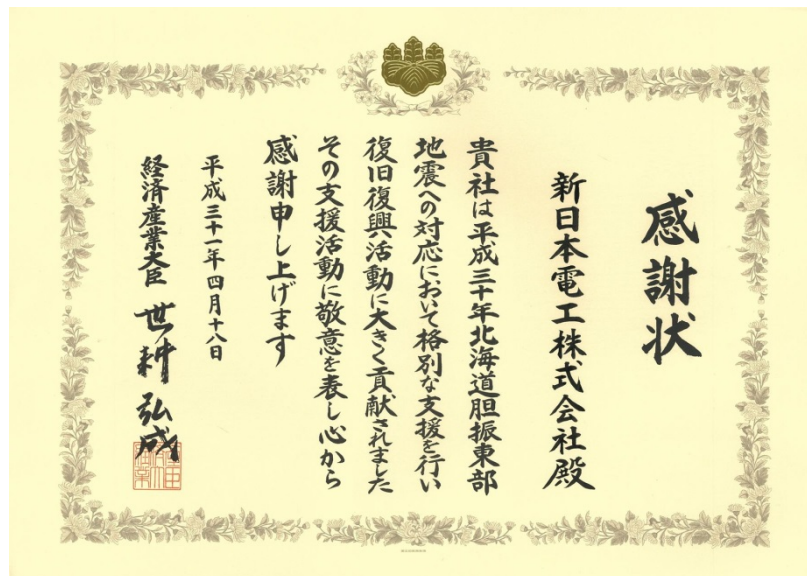 感謝状
新日本電工株式会社殿
貴社は平成三十年北海道胆振東部
地震への対応において格別な支援を行い
復旧復興活動に大きく貢献されました
その支援活動に敬意を表し心から
感謝申し上げます
平成三十一年四月十八日
経済産業大臣 世耕弘成